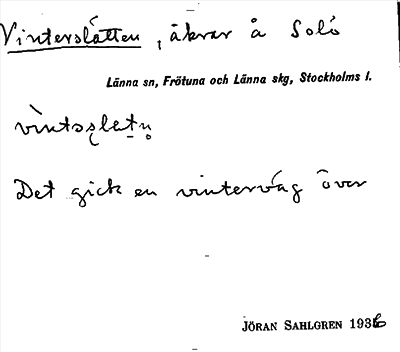 Vinterslätten, åkrar å Solö
Länna sn, Frötuna och Länna skg, Stockholms l.
vìntosletn̥
Det gick en vinterväg över
JÖRAN SAHLGREN 1936